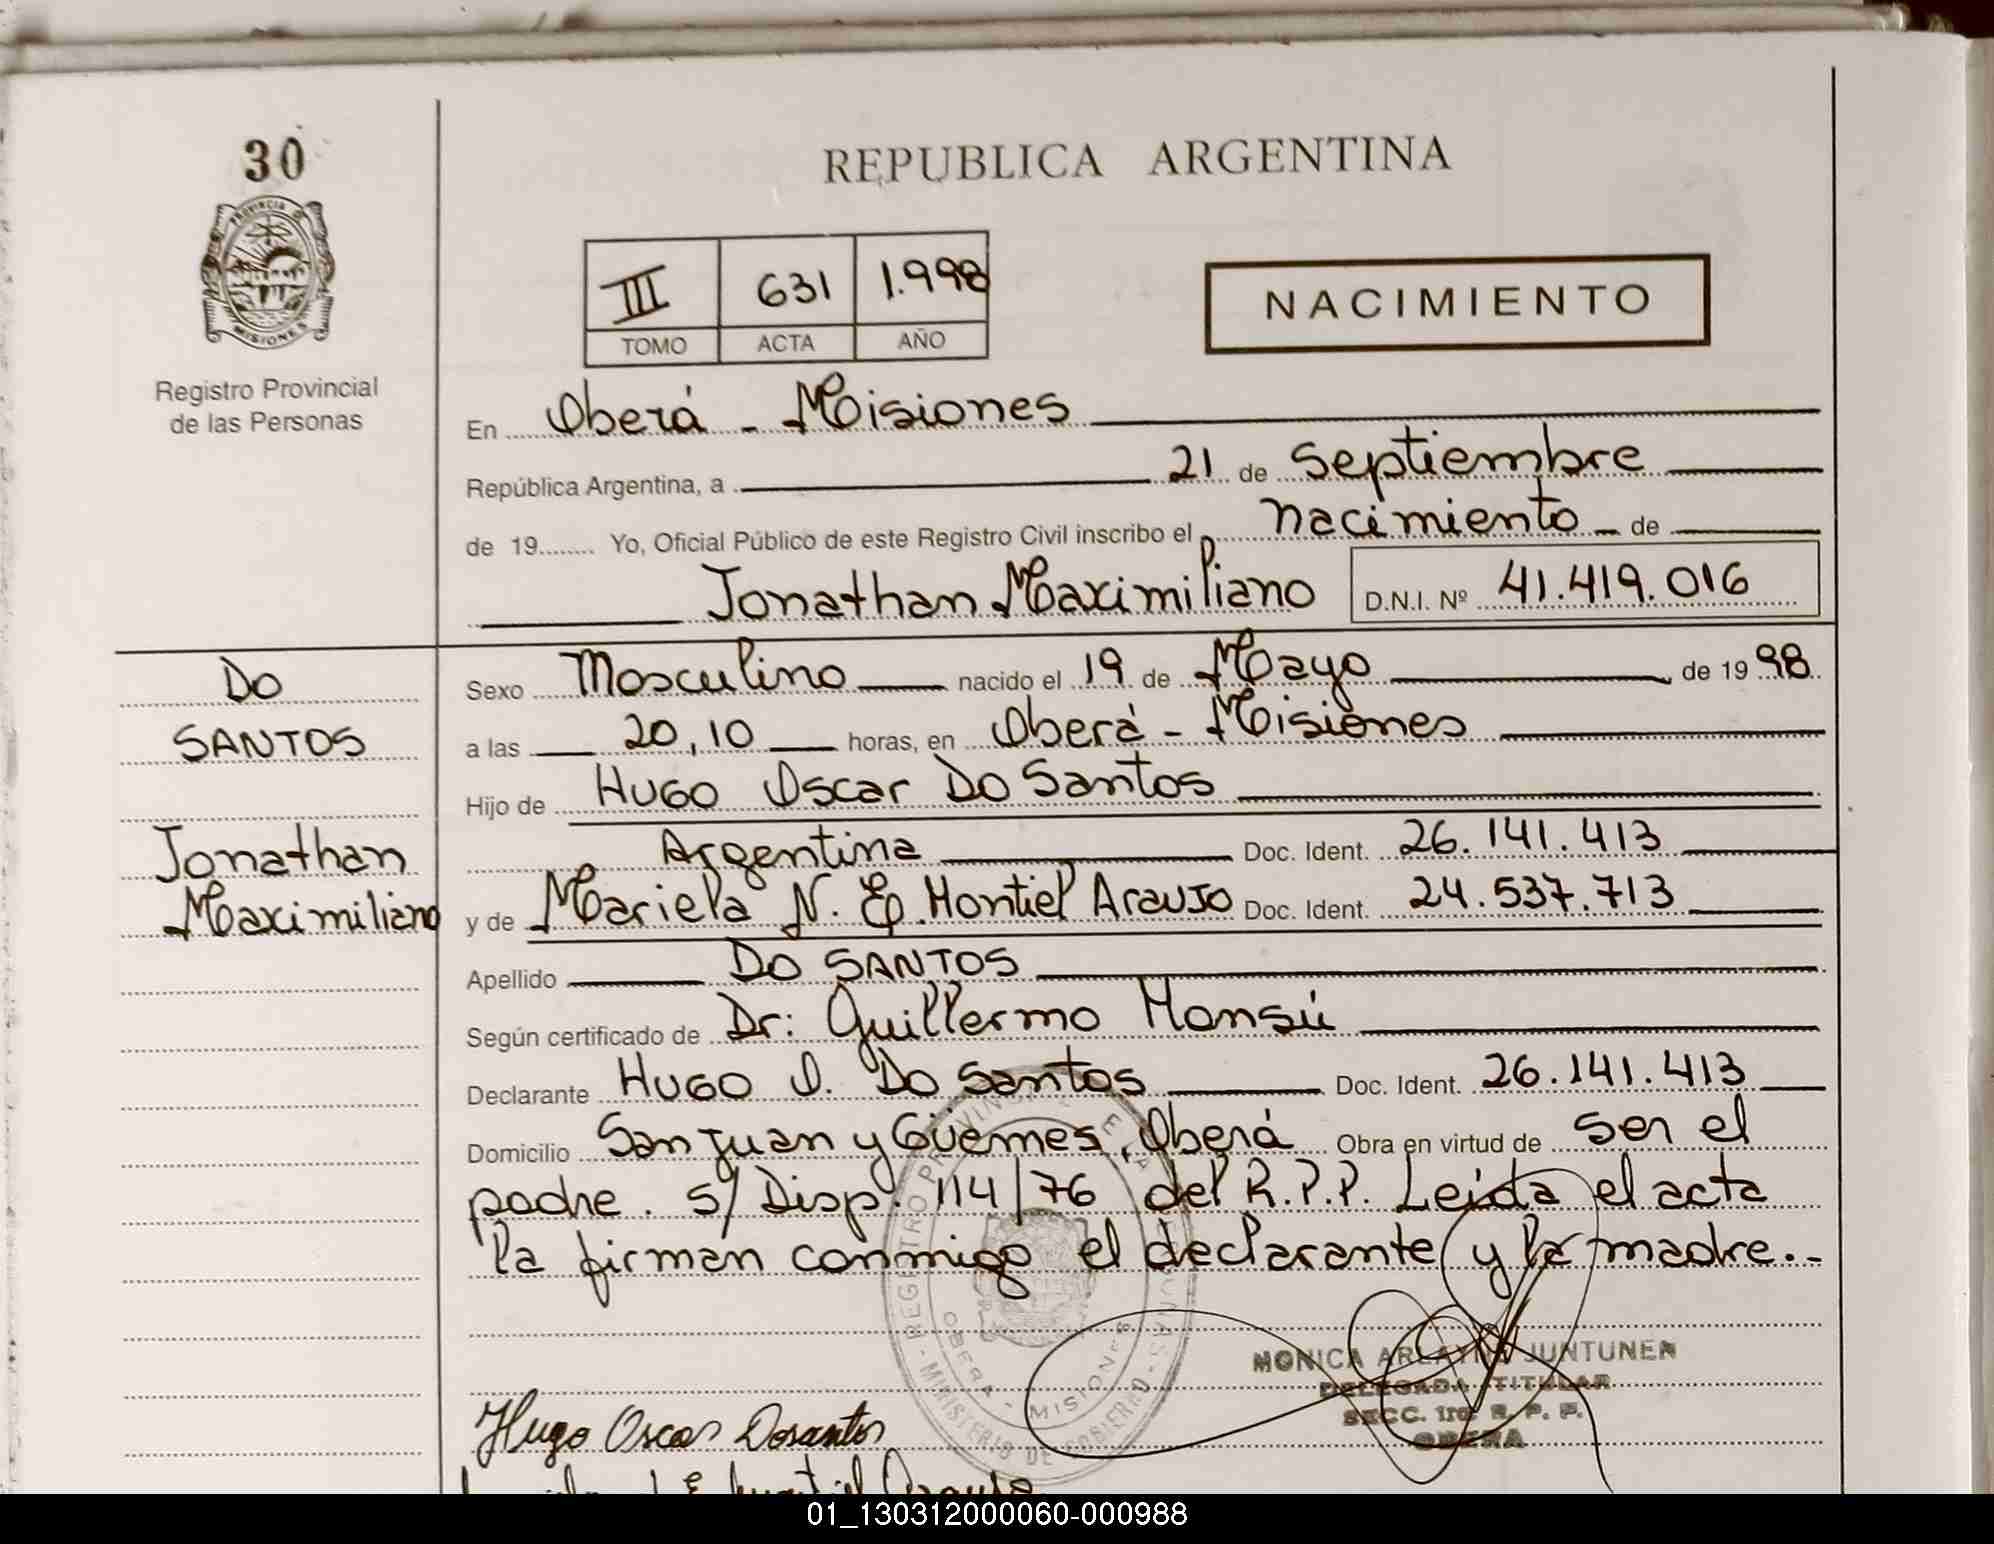 30
PROVINCIA DE
MISIONES
Registro Provincial
de las Personas
REPUBLICA ARGENTINA
III 631 1.998
TOMO ACTA AÑO
NACIMIENTO
En Oberá - Misiones
República Argentina, a 21 de Septiembre
de 19........ Yo, Oficial Público de este Registro Civil inscribo el nacimiento de
Jonathan Maximiliano D.N.I. Nº 41.419.016
DO
SANTOS
Jonathan
Maximiliano
Sexo Masculino nacido el 19 de Mayo de 1998
a las 20,10 horas, en Oberá - Misiones
Hijo de Hugo Oscar Do Santos
Argentina Doc. Ident. 26.141.413
y de Mariela N. E. Montiel Araujo Doc. Ident. 24.537.713
Apellido DO SANTOS
Según certificado de Dr: Guillermo Monsú
Declarante Hugo O. Do Santos Doc. Ident. 26.141.413
Domicilio San Juan y Güemes, Oberá Obra en virtud de ser el
padre. s/ Disp. 114/76 del R.P.P. Leida el acta
la firman conmigo el declarante y la madre.-
REGISTRO PROVINCIAL DE LAS PERSONAS - MINISTERIO DE GOBIERNO -
OBERA - MISIONES
MONICA JUNTUNEN
DELEGADA TITULAR
SECC. 1ra. R. P. P.
OBERA
Hugo Oscar Dosantos
E Montiel Araujo
01_130312000060-000988